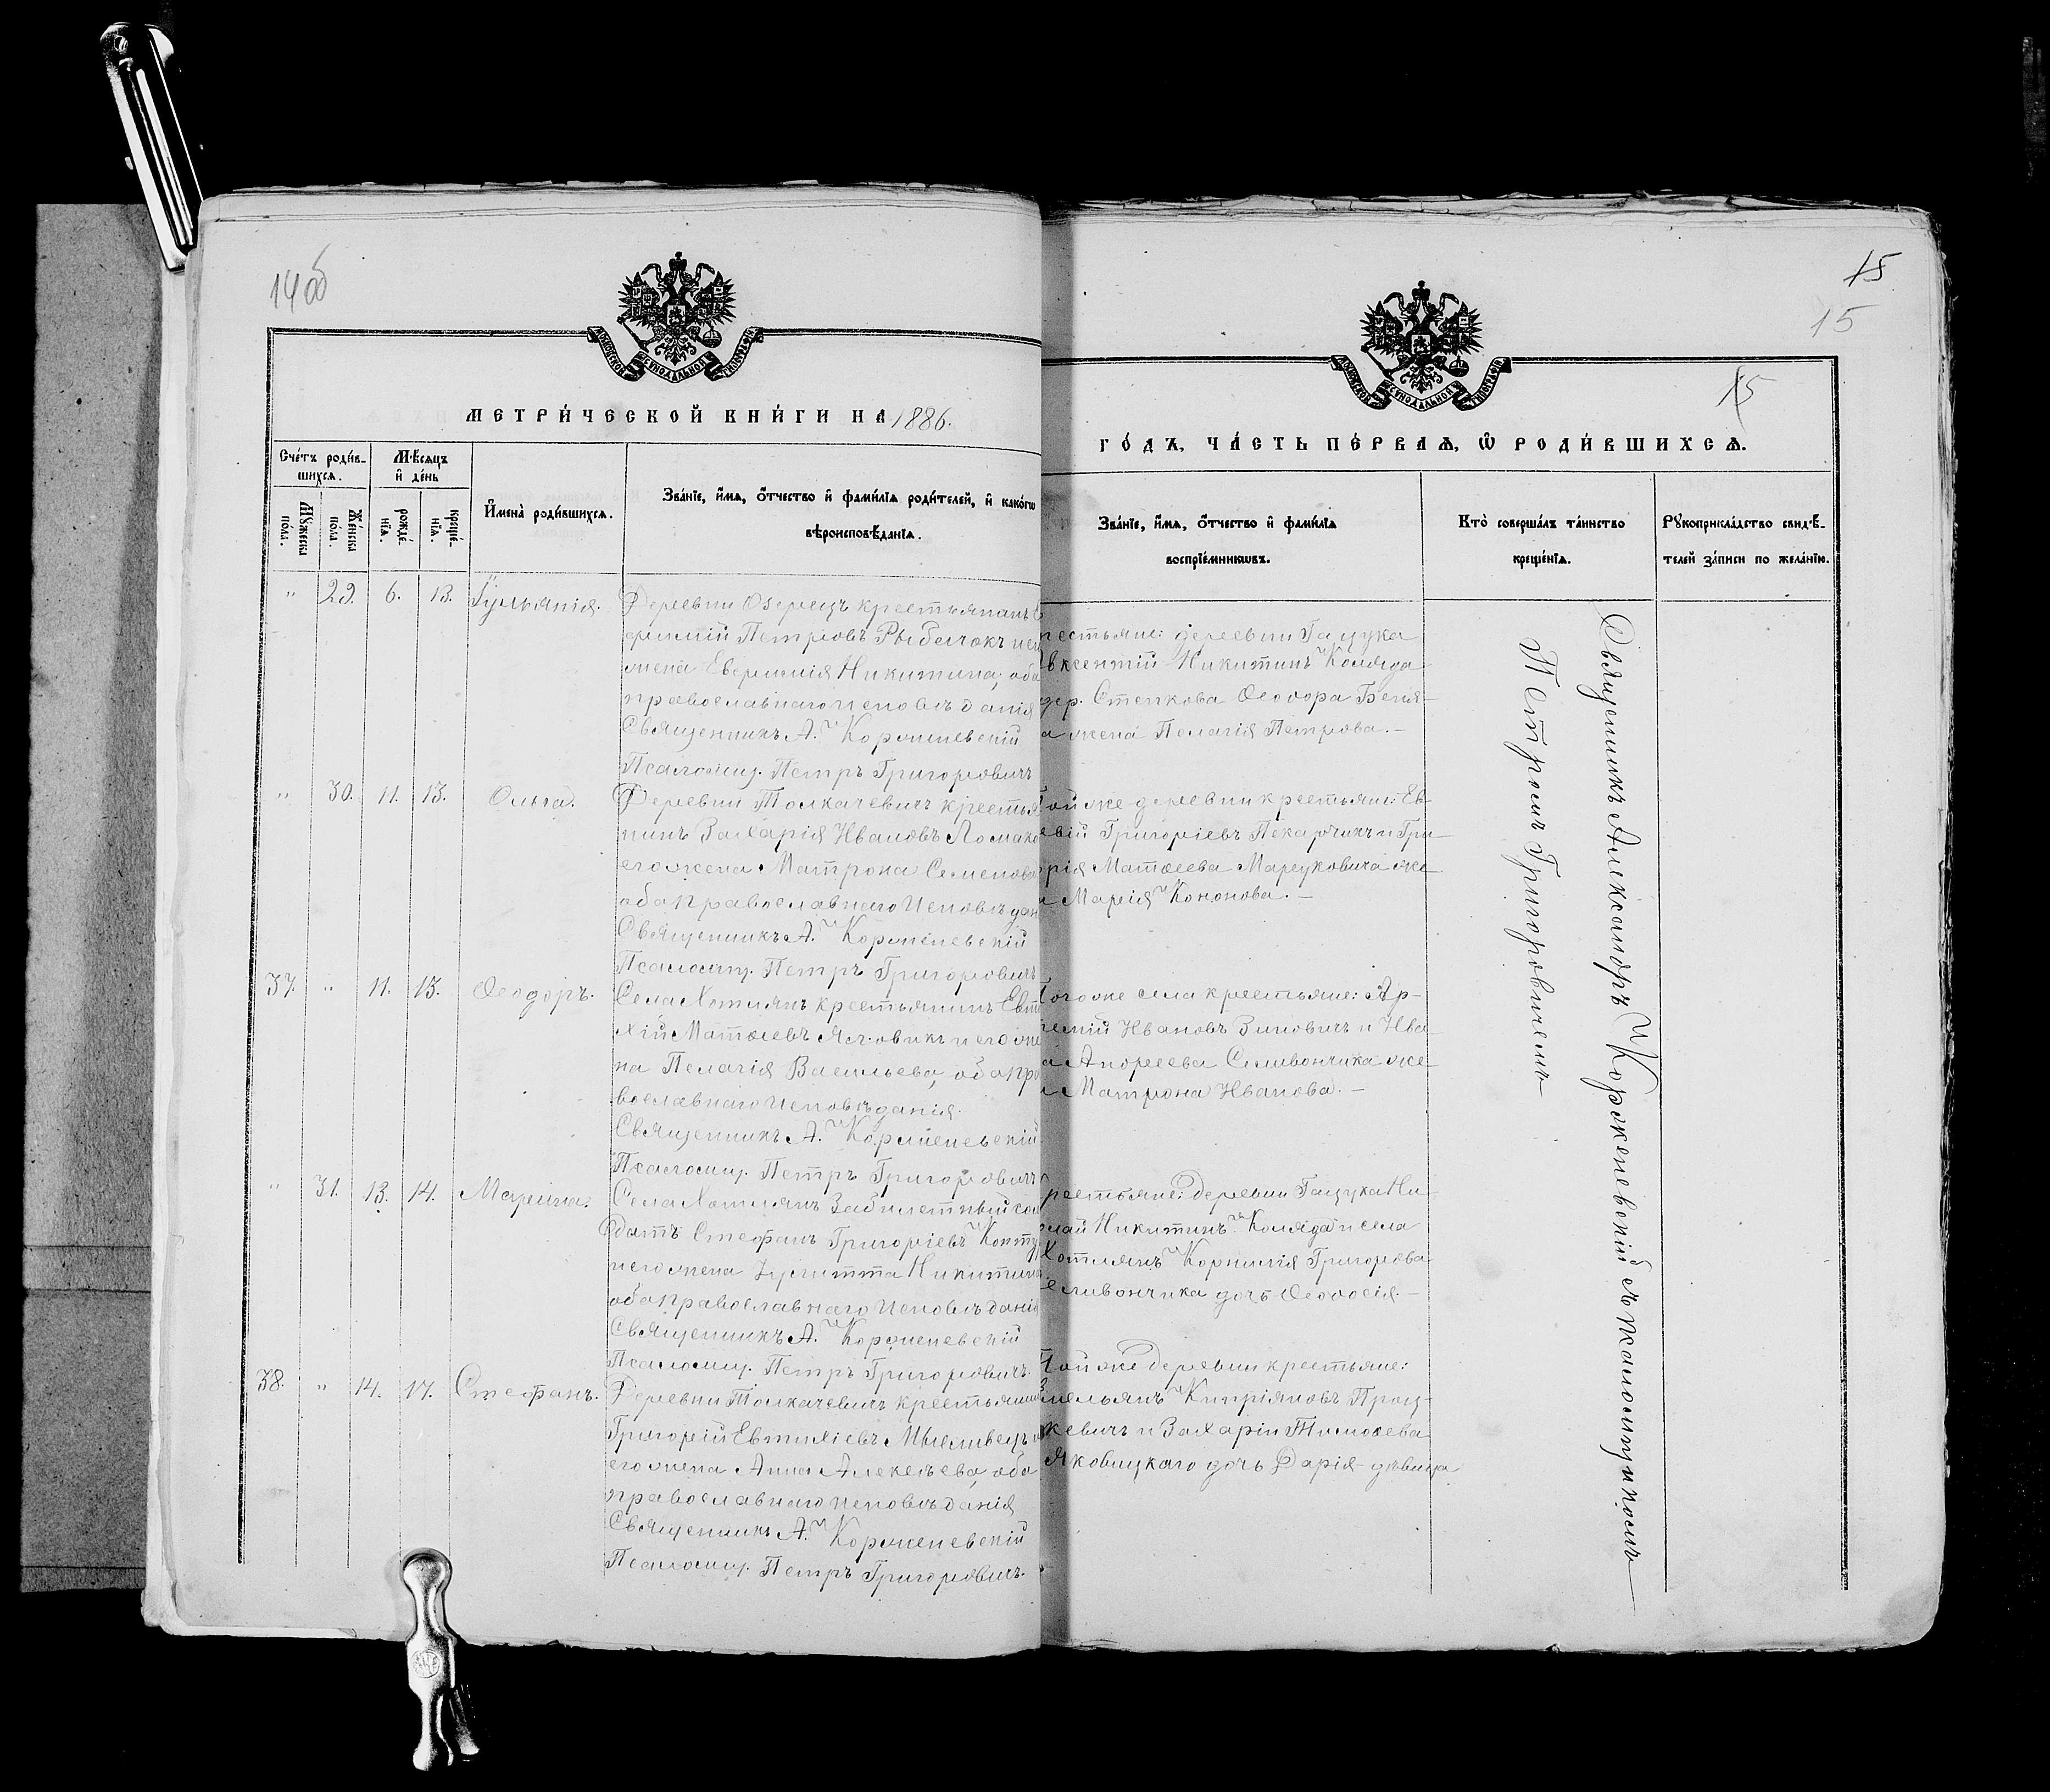 14об
15
15
15
МЕТРИ́ЧЕСКОЙ КНИ́ГИ НА 1886.
ГО́ДЪ, ЧА́СТЬ ПЕ́РВАѦ, Ѡ РОДИ́ВШИХСѦ.
Сче́тъ роди́в-
шихсѧ.
Мꙋ́жеска по́ла.
Же́нска по́ла.
Мѣ́сѧцъ и де́нь
рожде́-
нїѧ.
креще́-
нїѧ.
И҆мена̀ роди́вшихсѧ.
Зва́нїе, и҆́мѧ, ѻ҆́тчество и҆ фами́лїѧ роди́телей, и҆ како́гѡ
вѣроисповѣ́данїѧ.
Зва́нїе, и҆́мѧ, ѻ҆́тчество и҆ фами́лїѧ
воспрїе́мникѡвъ.
Кто̀ соверша́лъ та́инство
креще́нїѧ.
Рꙋкоприкла́дство свидѣ́-
телей за́писи по жела́нїю.
" 29. 6. 13. Іуліанія.
Деревни Озерецъ крестьянинъ
Петровъ Рыбачокъ
жена Евфимія Никитина, оба
православнаго исповѣданія
Священникъ А. Корженевскій
Псаломщ. Петръ Григоровичъ
крестьяне: деревни Гацука
Авксентій Никитинъ Коляда
дер. Степкова Ѳеодора
жена Пелагія Петрова.—
" 30. 11. 13. Ольга.
Деревни Толкачевичъ крестья
нинъ Захарія Ивановъ
его жена Матрона Семенова
оба православнаго исповѣдан
Священникъ А. Корженевскій
Псаломщ. Петръ Григоровичъ
Той же деревни крестьяне: Ев-
Григоріевъ Пекарчикъ и Гри-
горія Матѳеева Марцуковича же-
на Марія Кононова.—
37. " 11. 13. Ѳеодоръ.
Села Хотлянъ крестьянинъ Евти
хій Матѳеевъ и его же
на Пелагія Васильева, оба пра
вославнаго исповѣданія.
Священникъ А. Корженевскій
Псаломщ. Петръ Григоровичъ
Того же села крестьяне: Ар-
темій Ивановъ Зиновичъ и Ива-
на Андреева Селивончика же-
на Матрона Иванова.—
" 31. 13. 14. Марина.
Села Хотлянъ Забилетный сол
датъ Стефанъ Григоріевъ
и его жена Никитина
оба православнаго исповѣданія
Священникъ А. Корженевскій
Псаломщ. Петръ Григоровичъ.
Крестьяне: деревни Гацука Ни-
колай Никитинъ Коляда и села
Хотлянъ Корнилія Григорьева
Селивончика дочь Ѳеодосія.—
38. " 14. 17. Стефанъ.
Деревни Толкачевичъ крестьянинъ
Григорій Евтихіевъ Мысливецъ и
его жена Анна Алексѣева, оба
православнаго исповѣданія
Священникъ А. Корженевскій
Псаломщ. Петръ Григоровичъ.
Той же деревни крестьяне:
Емельянъ Кипріяновъ Проц-
кевичъ и Захаріи Тимоѳеева
Яковицкаго дочь Дарія дѣвица
Священникъ Александръ Корженевскій съ псаломщикомъ
Петромъ Григоровичемъ